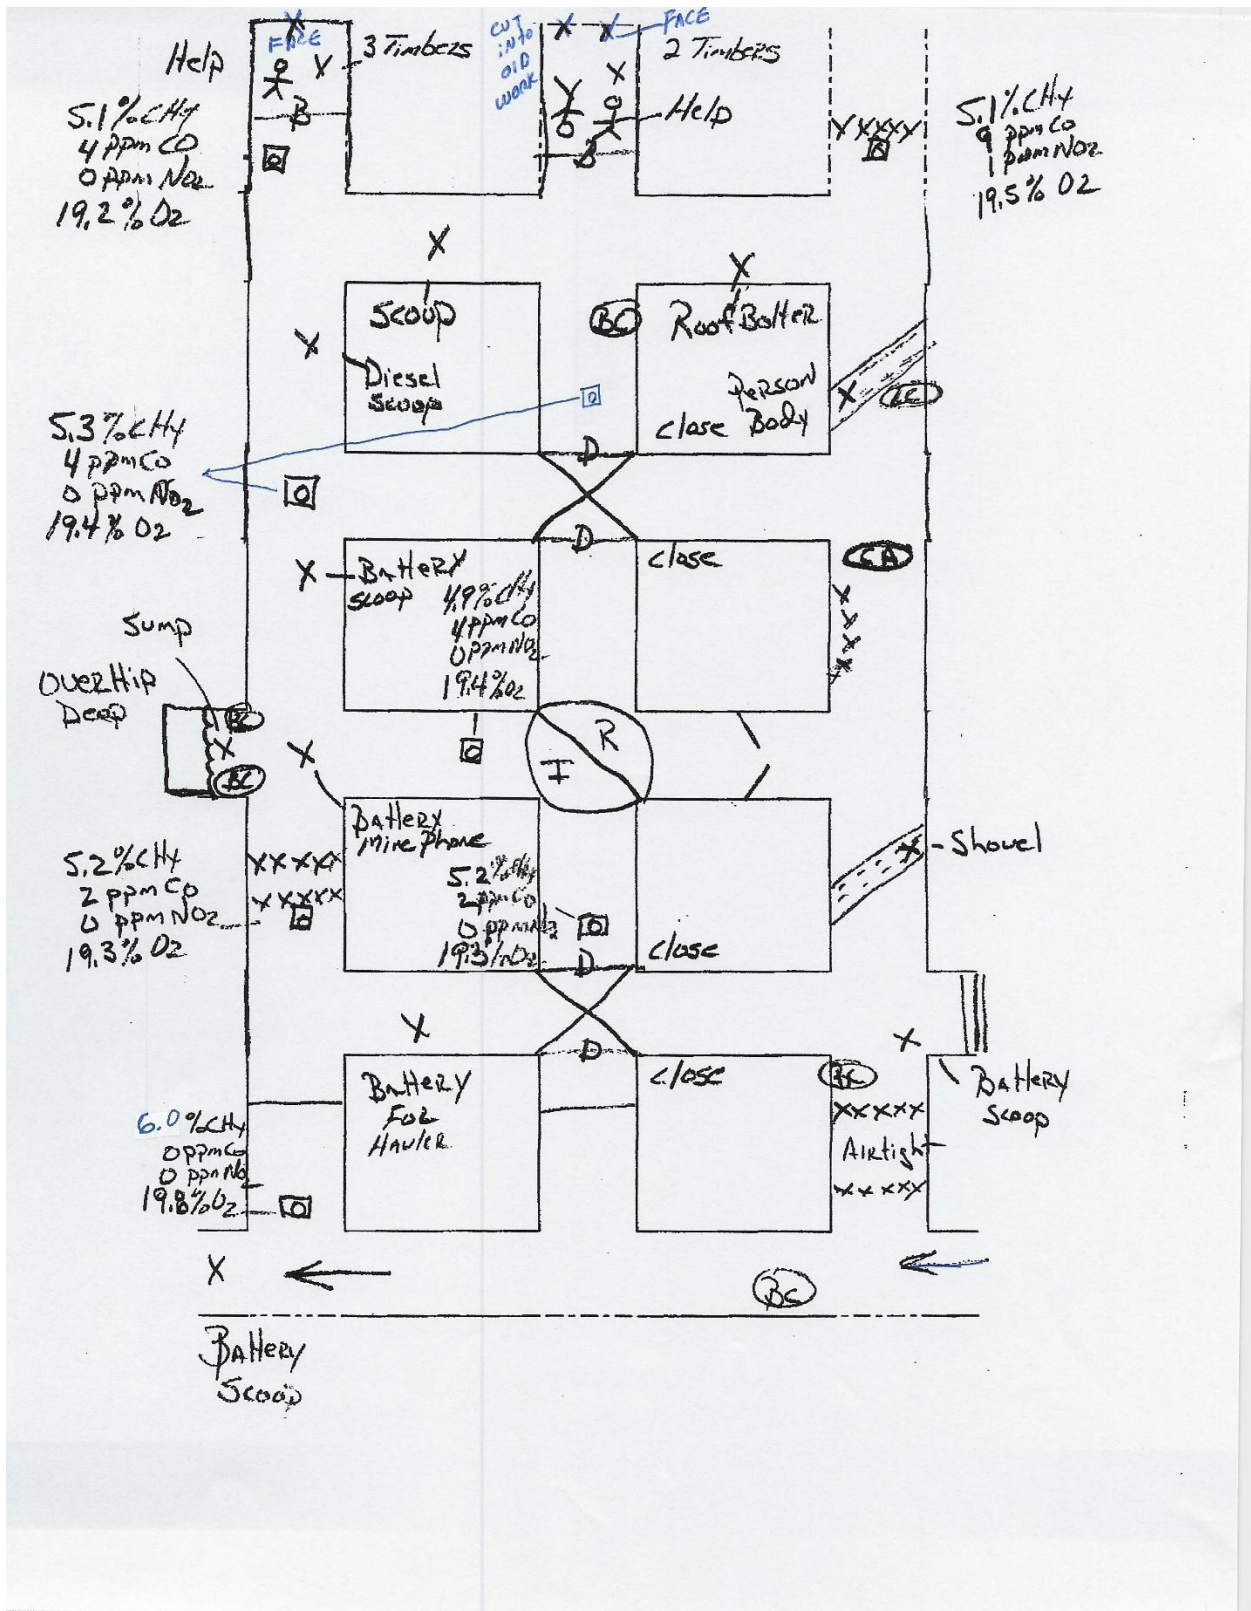 FACE
Help
3 Timbers
CUT
iNto
OlD
WORK
FACE
2 Timbers
Help
B
B
5.1%CH4
4 ppm CO
0 ppm NO2
19.2% O2
5.1%CH4
9 ppm CO
1 ppm NO2
19.5% O2
Scoop
Diesel
Scoop
BC
Roof Bolter
Person
Body
close
D
5.3%CH4
4 ppm CO
0 ppm NO2
19.4% O2
D
Battery
scoop
4.9%CH4
4 ppm CO
0 ppm NO2
19.4% O2
close
CA
Sump
OVER Hip
Deep
BC
BC
R
I
Battery
Mine Phone
5.2%CH4
2 ppm CO
0 ppm NO2
19.3% O2
5.2%CH4
2 ppm CO
0 ppm NO2
19.3% O2
D
close
Shovel
D
Battery
FOR
Hauler
close
BC
Airtight
Battery
Scoop
6.0%CH4
0 ppm CO
0 ppm NO
19.8% O2
BC
Battery
Scoop